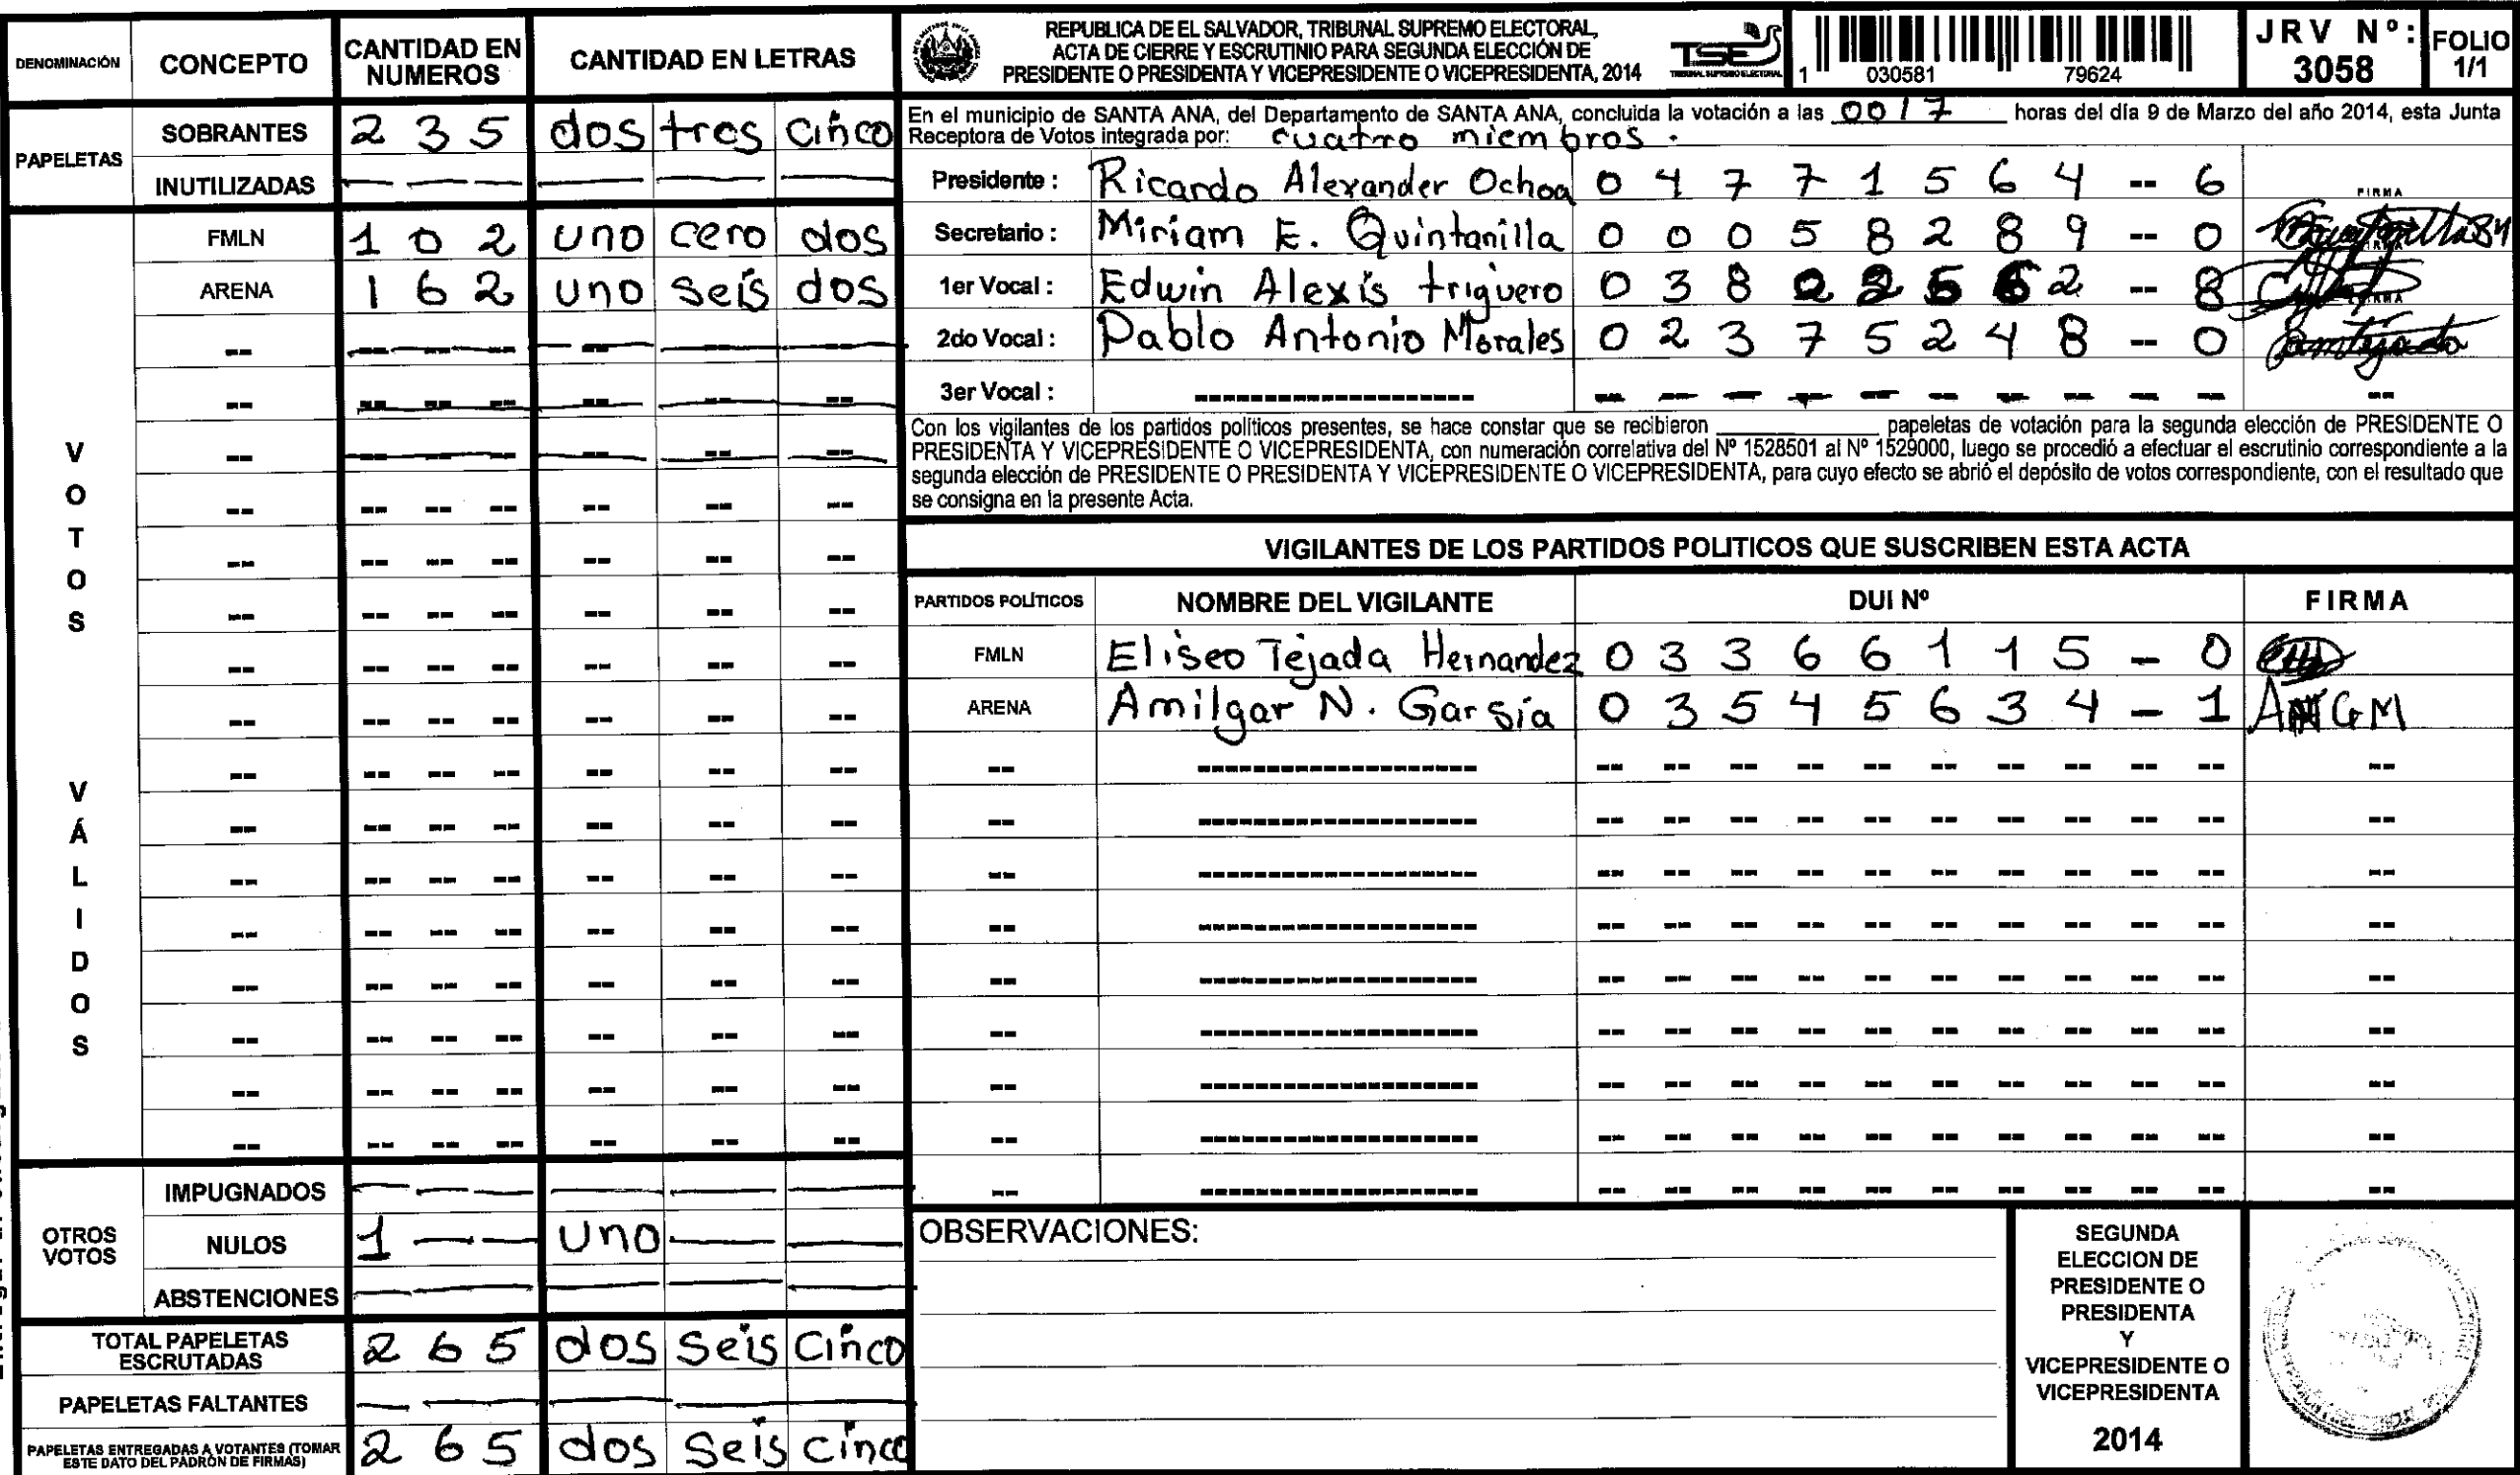 DENOMINACIÓN CONCEPTO CANTIDAD EN NUMEROS CANTIDAD EN LETRAS
PAPELETAS
SOBRANTES 2 3 5 dos tres cinco
INUTILIZADAS — — — — — —
VOTOS VÁLIDOS
FMLN 1 0 2 uno cero dos
ARENA 1 6 2 uno seis dos
OTROS VOTOS
IMPUGNADOS — — — — — —
NULOS 1 — — uno — —
ABSTENCIONES — — — — — —
TOTAL PAPELETAS ESCRUTADAS 2 6 5 dos seis cinco
PAPELETAS FALTANTES — — — — — —
PAPELETAS ENTREGADAS A VOTANTES (TOMAR ESTE DATO DEL PADRÓN DE FIRMAS) 2 6 5 dos seis cinco
REPUBLICA DE EL SALVADOR, TRIBUNAL SUPREMO ELECTORAL,
ACTA DE CIERRE Y ESCRUTINIO PARA SEGUNDA ELECCIÓN DE
PRESIDENTE O PRESIDENTA Y VICEPRESIDENTE O VICEPRESIDENTA, 2014
TSE
TRIBUNAL SUPREMO ELECTORAL
1 030581 79624
JRV Nº: 3058
FOLIO 1/1
En el municipio de SANTA ANA, del Departamento de SANTA ANA, concluida la votación a las 0017 horas del día 9 de Marzo del año 2014, esta Junta
Receptora de Votos integrada por: cuatro miembros.
Presidente: Ricardo Alexander Ochoa 0 4 7 7 1 5 6 4 -- 6 FIRMA
Secretario: Miriam E. Quintanilla 0 0 0 5 8 2 8 9 -- 0
1er Vocal: Edwin Alexis triguero 0 3 8 2 2 5 6 2 -- 8
2do Vocal: Pablo Antonio Morales 0 2 3 7 5 2 4 8 -- 0
3er Vocal: ------------------
Con los vigilantes de los partidos políticos presentes, se hace constar que se recibieron ________ papeletas de votación para la segunda elección de PRESIDENTE O
PRESIDENTA Y VICEPRESIDENTE O VICEPRESIDENTA, con numeración correlativa del Nº 1528501 al Nº 1529000, luego se procedió a efectuar el escrutinio correspondiente a la
segunda elección de PRESIDENTE O PRESIDENTA Y VICEPRESIDENTE O VICEPRESIDENTA, para cuyo efecto se abrió el depósito de votos correspondiente, con el resultado que
se consigna en la presente Acta.
VIGILANTES DE LOS PARTIDOS POLITICOS QUE SUSCRIBEN ESTA ACTA
PARTIDOS POLÍTICOS NOMBRE DEL VIGILANTE DUI Nº FIRMA
FMLN Eliseo Tejada Hernandez 0 3 3 6 6 1 1 5 - 0
ARENA Amilgar N. Garsía 0 3 5 4 5 6 3 4 - 1
OBSERVACIONES:
SEGUNDA
ELECCION DE
PRESIDENTE O
PRESIDENTA
Y
VICEPRESIDENTE O
VICEPRESIDENTA
2014